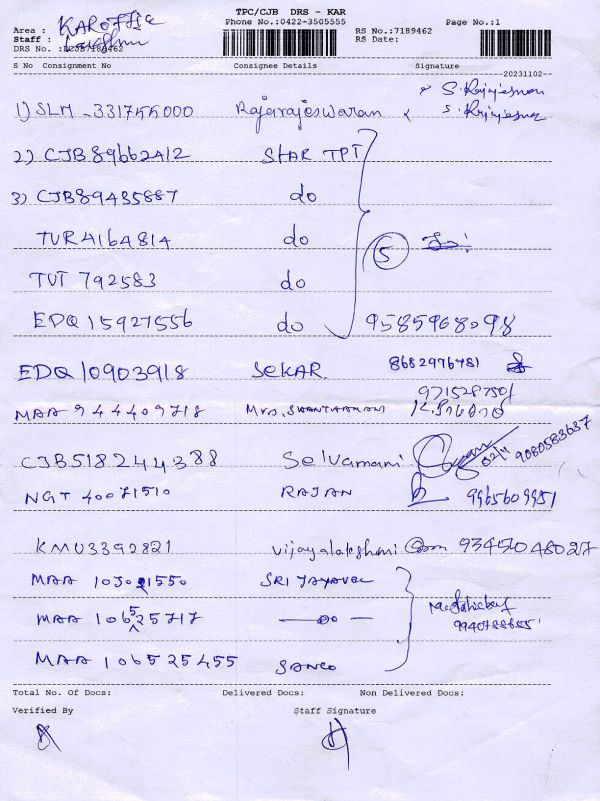 TPC/CJB DRS - KAR
Phone No.:0422-3505555
Page No.:1
Area : KAR OFFICE
RS No.:7189462
Staff : Lakshmi
RS Date:
DRS No. :
S No Consignment No Consignee Details Signature
20231102
1) SLM -331755000 Rajarajeswaran
2) CJB 89662412 STAR TPT
3) CJB 89435887 do
TUR 4164814 do 5
TUT 792583 do
EDQ 15927556 do 9585968098
EDQ 10903918 SEKAR. 8682976781
MAA 944409718 Mrs. SHANTHAMANI
CJB518244388 Selvamani 02/11 9080583637
NGT 40071510 RAJAN 9965609951
KMU3392821 Vijayalakshmi
MAA SRI JAYAVEL
MAA 106525717 do
MAA 106525455 SANCO
Total No. Of Docs: Delivered Docs: Non Delivered Docs:
Verified By Staff Signature